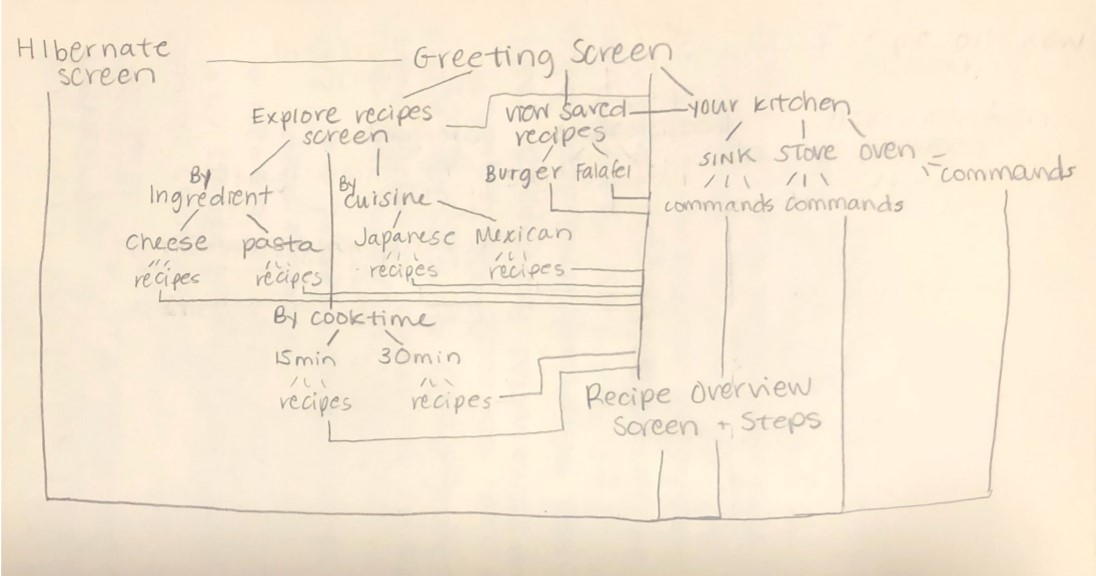 HIbernate
screen
Greeting Screen
Explore recipes
screen
view saved
recipes
your kitchen
Burger Falafel
SINK STOVE oven
commands
commands commands
By
Ingredient
By
Cuisine
cheese pasta
Japanese Mexican
recipes recipes
recipes recipes
By cooktime
15min 30min
recipes recipes
Recipe Overview
Screen + Steps